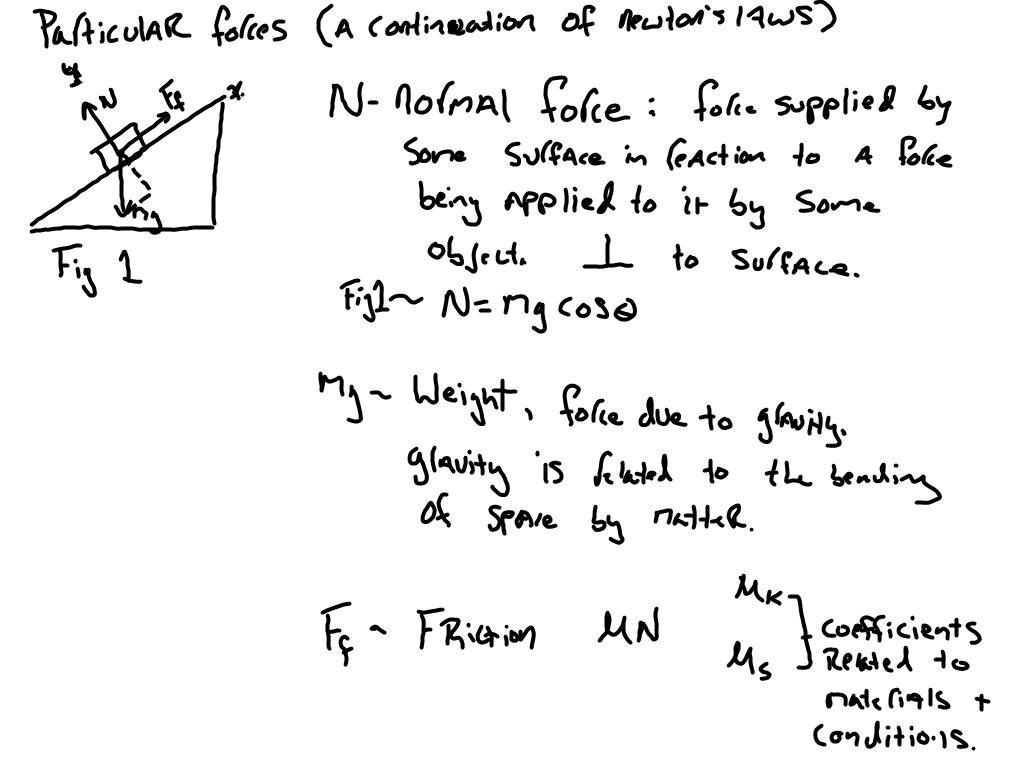 Particular forces (A continuation of newton's laws)
y
N
Ff
x
mg
Fig 1
N- normal force : force supplied by
some surface in reaction to a force
being applied to it by some
object. ⊥ to surface.
Fig1~ N = mg cosθ
mg ~ Weight, force due to gravity.
gravity is related to the bending
of space by matter.
Ff ~ Friction μN
μk
μs
coefficients
Related to
materials +
conditions.